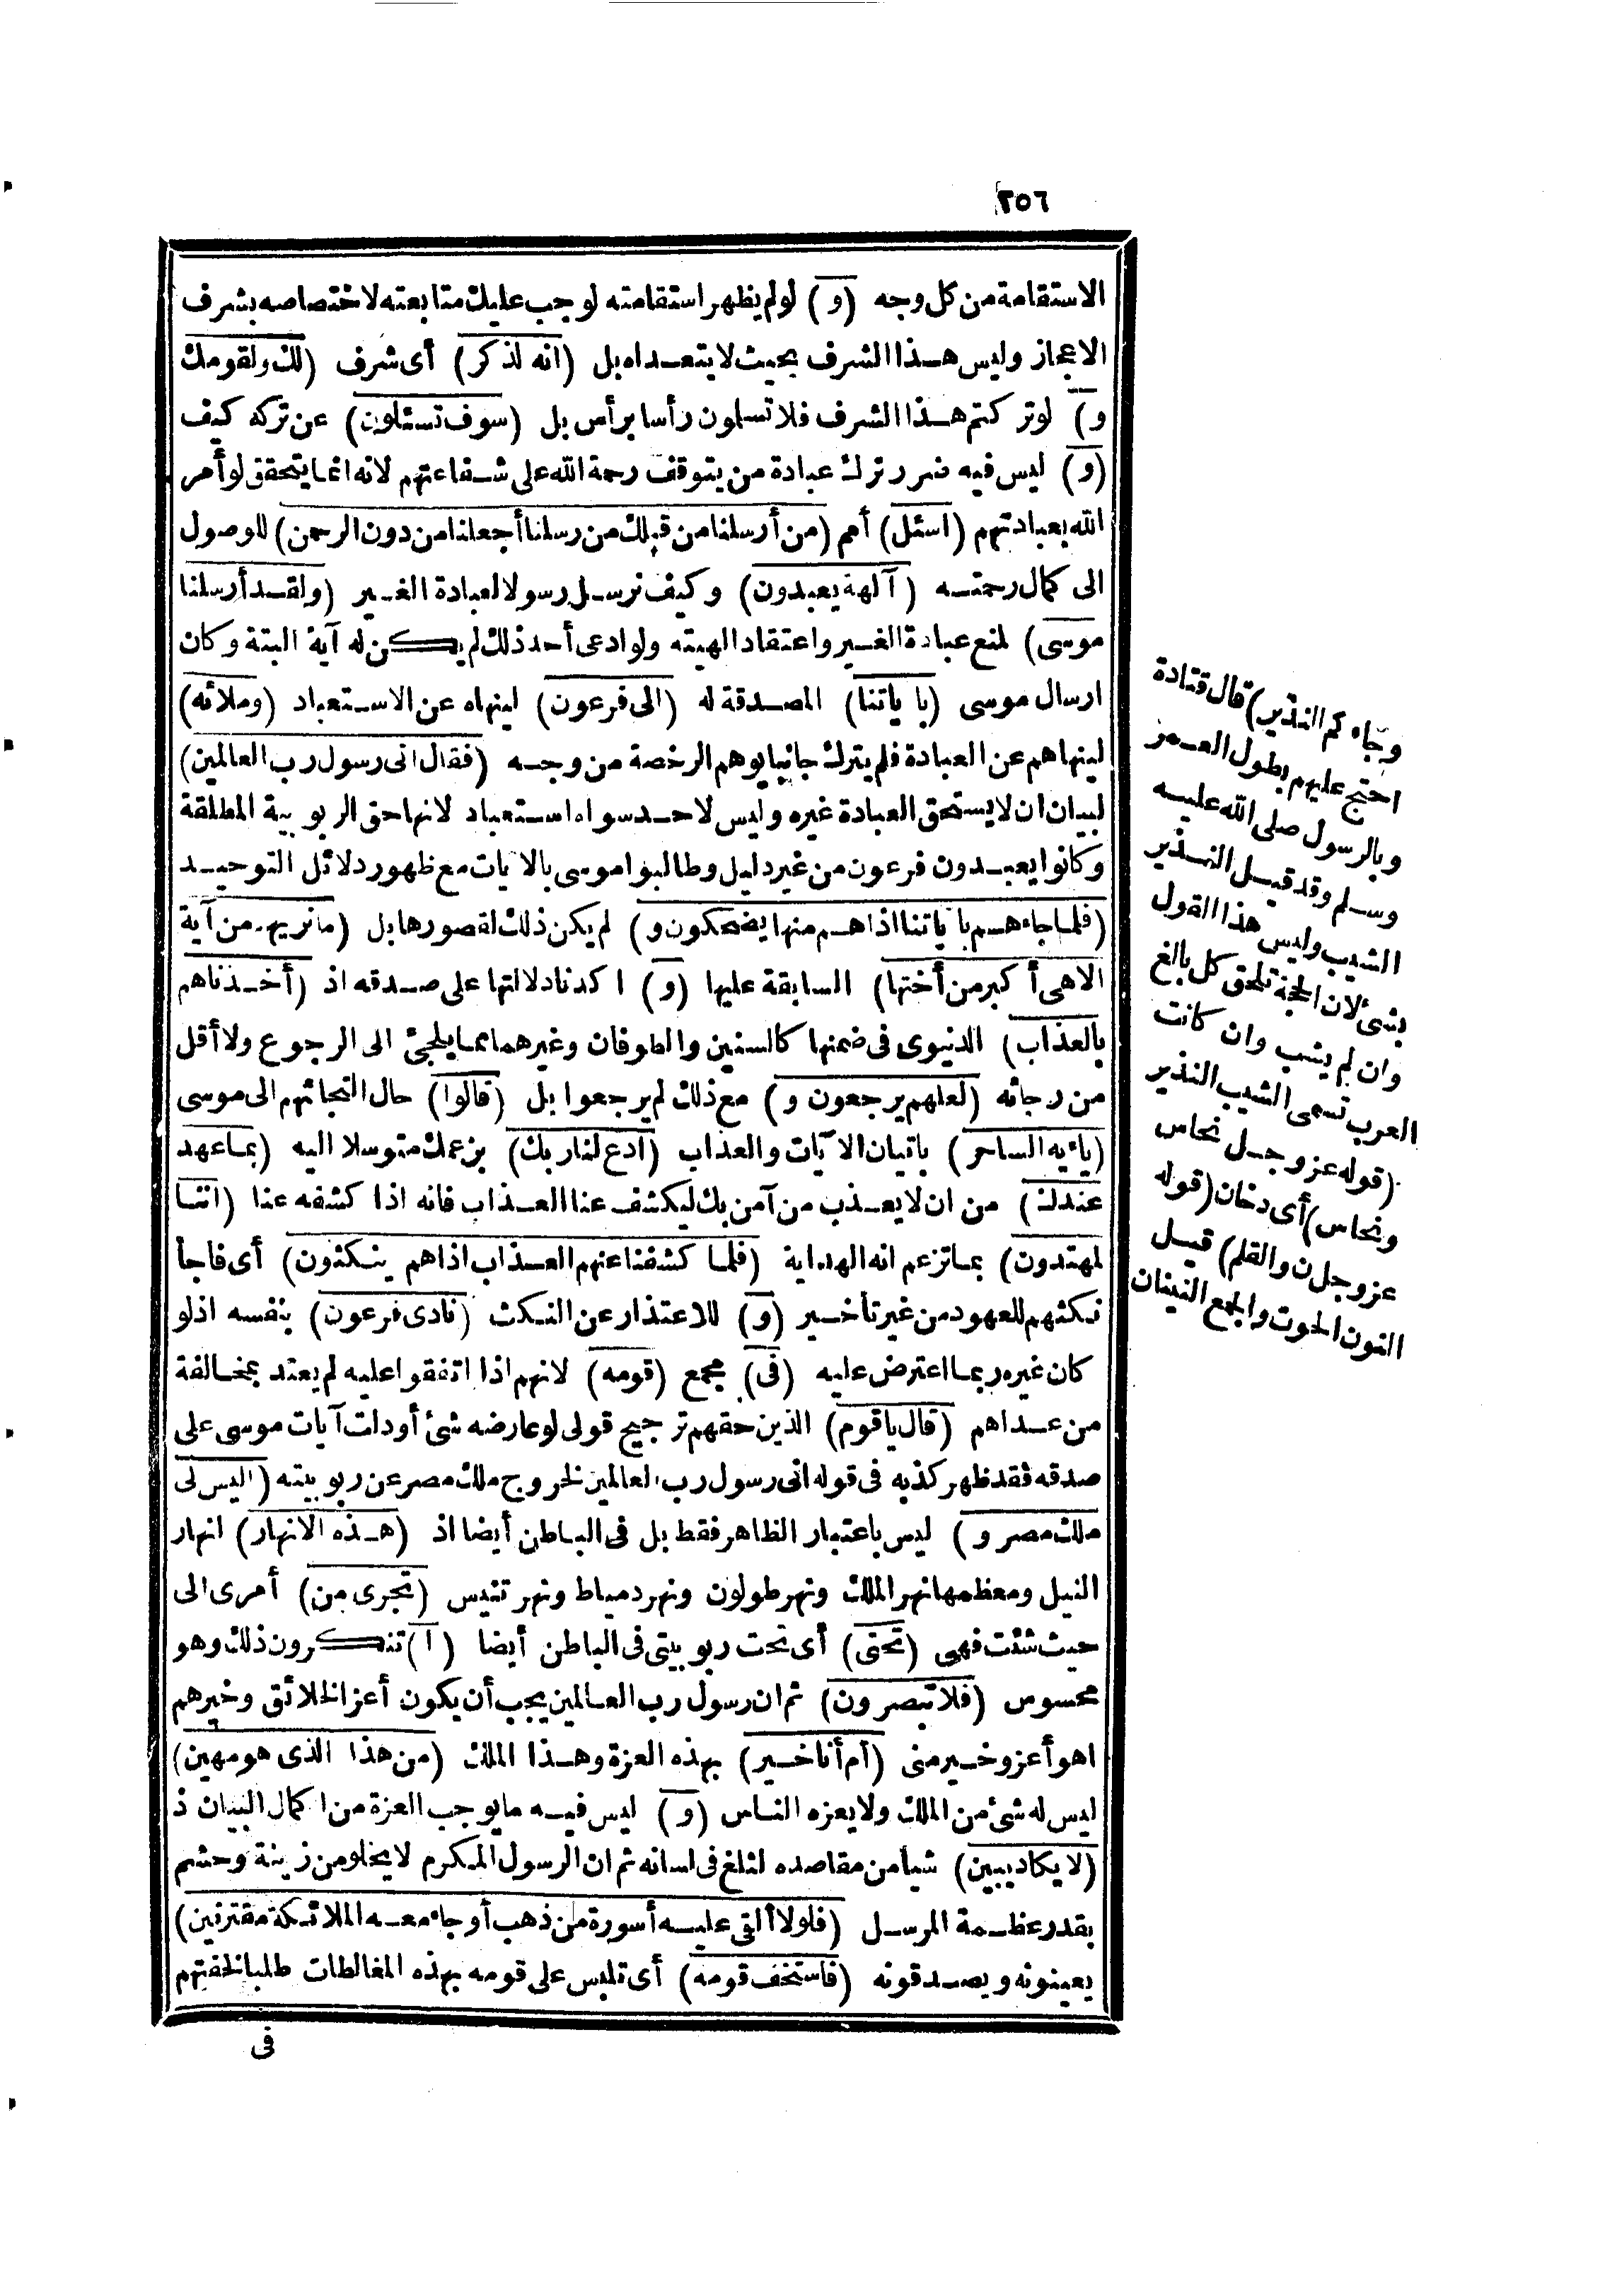 ٢٥٦
الاستقامة من كل وجه (و) لو لم يظهر استقامته لوجب عليك متابعته لاختصاصه بشرف
الاعجاز وليس هذا الشرف بحيث لا يتعداه بل (انه لذكر) أى شرف (لك ولقومك
و) لو تركتم هذا الشرف فلا تسلمون رأسا برأس بل (سوف تسئلون) عن تركه كيف
(و) ليس فيه ضرر ترك عبادة من يتوقف رحمة الله على شفاعتهم لانه انما يتحقق لو أمر
الله بعبادتهم (اسئل) أمم (من أرسلنا من قبلك من رسلنا أجعلنا من دون الرحمن) للوصول
الى كمال رحمته (آلهة يعبدون) وكيف نرسل رسولا لعبادة الغير (ولقد أرسلنا
موسى) لمنع عبادة الغير واعتقاد الهيته ولو ادعى أحد ذلك لم يكن له آية البتة وكان
ارسال موسى (باٰياتنا) المصدقة له (الى فرعون) لينهاه عن الاستعباد (وملائه)
لينهاهم عن العبادة فلم يترك جانبا يوهم الرخصة من وجه (فقال انى رسول رب العالمين)
لبيان ان لا يستحق العبادة غيره وليس لاحد سواه استعباد لانها حق الربوبية المطلقة
وكانوا يعبدون فرعون من غير دليل وطالبوا موسى بالآيات مع ظهور دلائل التوحيد
(فلما جاءهم باٰياتنا اذا هم منها يضحكون و) لم يكن ذلك لقصورها بل (ما نريهم من آية
الا هى أكبر من أختها) السابقة عليها (و) اكدنا دلالتها على صدقه اذ (أخذناهم
بالعذاب) الدنيوى فى ضمنها كالسنين والطوفان وغيرهما مما يلجئ الى الرجوع ولا أقل
من رجائه (لعلهم يرجعون و) مع ذلك لم يرجعوا بل (قالوا) حال التجائهم الى موسى
(ياءيه الساحر) باتيان الآيات والعذاب (ادع لنا ربك) بزعمك متوسلا اليه (بما عهد
عندك) من ان لا يعذب من آمن بك ليكشف عنا العذاب فانه اذا كشفه عنا (اننا
لمهتدون) بما تزعم انه الهداية (فلما كشفنا عنهم العذاب اذا هم ينكثون) أى فاجأ
نكثهم للعهود من غير تأخير (و) للاعتذار عن النكث (نادى فرعون) بنفسه اذ لو
كان غيره ربما اعترض عليه (فى) مجمع (قومه) لانهم اذا اتفقوا عليه لم يعتد بمخالفة
من عداهم (قال ياقوم) الذين حقهم ترجيح قولى لو عارضه شئ أو دلت آيات موسى على
صدقه فقد ظهر كذبه فى قوله انى رسول رب العالمين لخروج ملك مصر عن ربوبيته (اليس لى
ملك مصر و) ليس باعتبار الظاهر فقط بل فى الباطن أيضا اذ (هذه الانهار) انهار
النيل ومعظمها نهر الملك ونهر طولون ونهر دمياط ونهر تنيس (تجرى من) أمرى الى
حيث شئت فهى (تحتى) أى تحت ربوبيتى فى الباطن أيضا (ا) تنكرون ذلك وهو
محسوس (فلا تبصرون) ثم ان رسول رب العالمين يجب أن يكون أعز الخلائق وخيرهم
اهو أعز وخير منى (أم أنا خير) بهذه العزة وهذا الملك (من هذا الذى هو مهين)
ليس له شئ من الملك ولا يعزه الناس (و) ليس فيه ما يوجب العزة من اكمال البيان ذ
(لا يكاد يبين) شيأ من مقاصده لثلغ فى لسانه ثم ان الرسول المكرم لا يخلو من زينة وحشم
بقدر عظمة المرسل (فلولا ألقى عليه أسورة من ذهب أو جاء معه الملائكة مقترنين)
يعينونه ويصدقونه (فاستخف قومه) أى تلبس على قومه بهذه المغالطات طلبا لخفتهم
فى
وجاءكم النذير) قال قتادة
احتج عليهم بطول العمر
وبالرسول صلى الله عليه
وسلم وقد قيل النذير
الشيب وليس هذا القول
بشئ لان الحجة تلحق كل بالغ
وان لم يشب وان كانت
العرب تسمى الشيب النذير
(قوله عز وجل نحاس
ونحاس) أى دخان (قوله
عز وجل ن والقلم) قيل
النون الحوت والجمع النينان